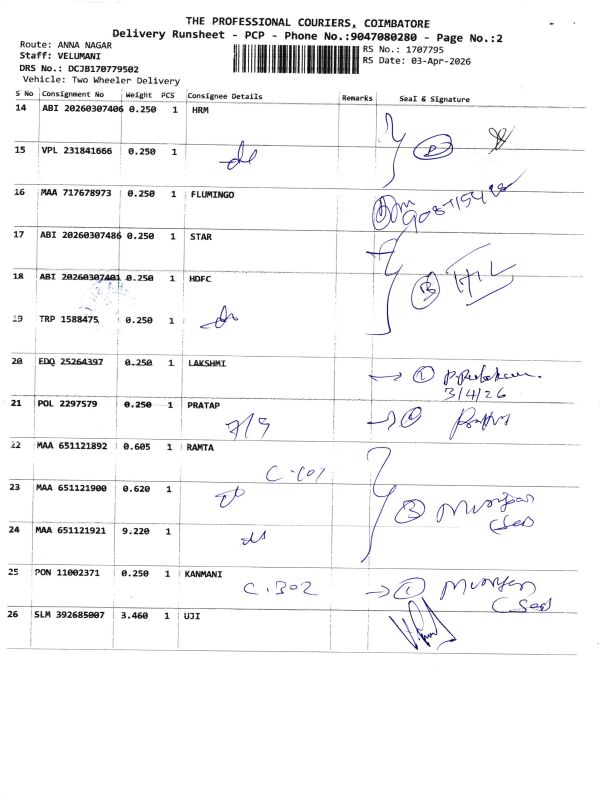 THE PROFESSIONAL COURIERS, COIMBATORE
Delivery Runsheet - PCP - Phone No.:9047080280 - Page No.:2
Route: ANNA NAGAR
Staff: VELUMANI
DRS No.: DCJB170779502
Vehicle: Two Wheeler Delivery
RS No.: 1707795
RS Date: 03-Apr-2026
S No Consignment No Weight PCS Consignee Details Remarks Seal & Signature
14 ABI 20260307406 0.250 1 HRM
15 VPL 231841666 0.250 1
16 MAA 717678973 0.250 1 FLUMINGO
17 ABI 20260307486 0.250 1 STAR
18 ABI 20260307401 0.250 1 HDFC
19 TRP 1588475 0.250 1
20 EDQ 25264397 0.250 1 LAKSHMI
3/4/26
21 POL 2297579 0.250 1 PRATAP
7/9
22 MAA 651121892 0.605 1 RAMTA
C-101
23 MAA 651121900 0.620 1
24 MAA 651121921 9.220 1
25 PON 11002371 0.250 1 KANMANI
C-302
26 SLM 392685007 3.460 1 UJI